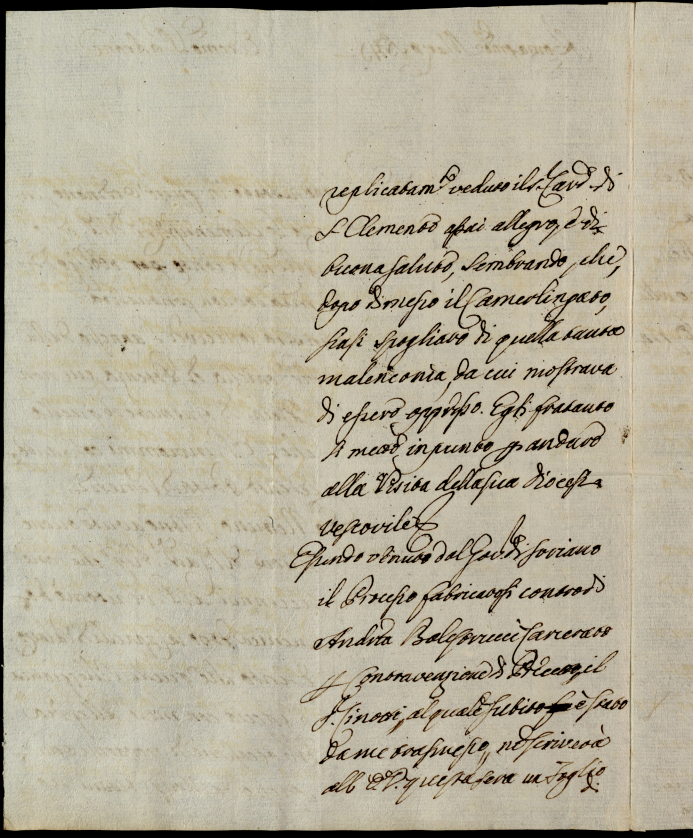 replicatam.te veduto il S.r Card. di
S. Clemente assai allegro, e di
buona salute, sembrando, che,
dopo dimesso il Camerlingato,
siasi spogliato di quella tanta
malenconia, da cui mostrava
di essere oppresso. Egli frattanto
si mette in punto p andare
alla Visita della sua Diocesi
Vescovile
Essendo venuto dal Gov. di Soriano
il Processo fabricatosi contro di
Andrea Balestrucci Carcerato
p Contravenzione di Precetto, il
S. Sinossi, al quale subito è stato
da me trasmesso, ne scriverà
all' E.V. questa sera un foglio